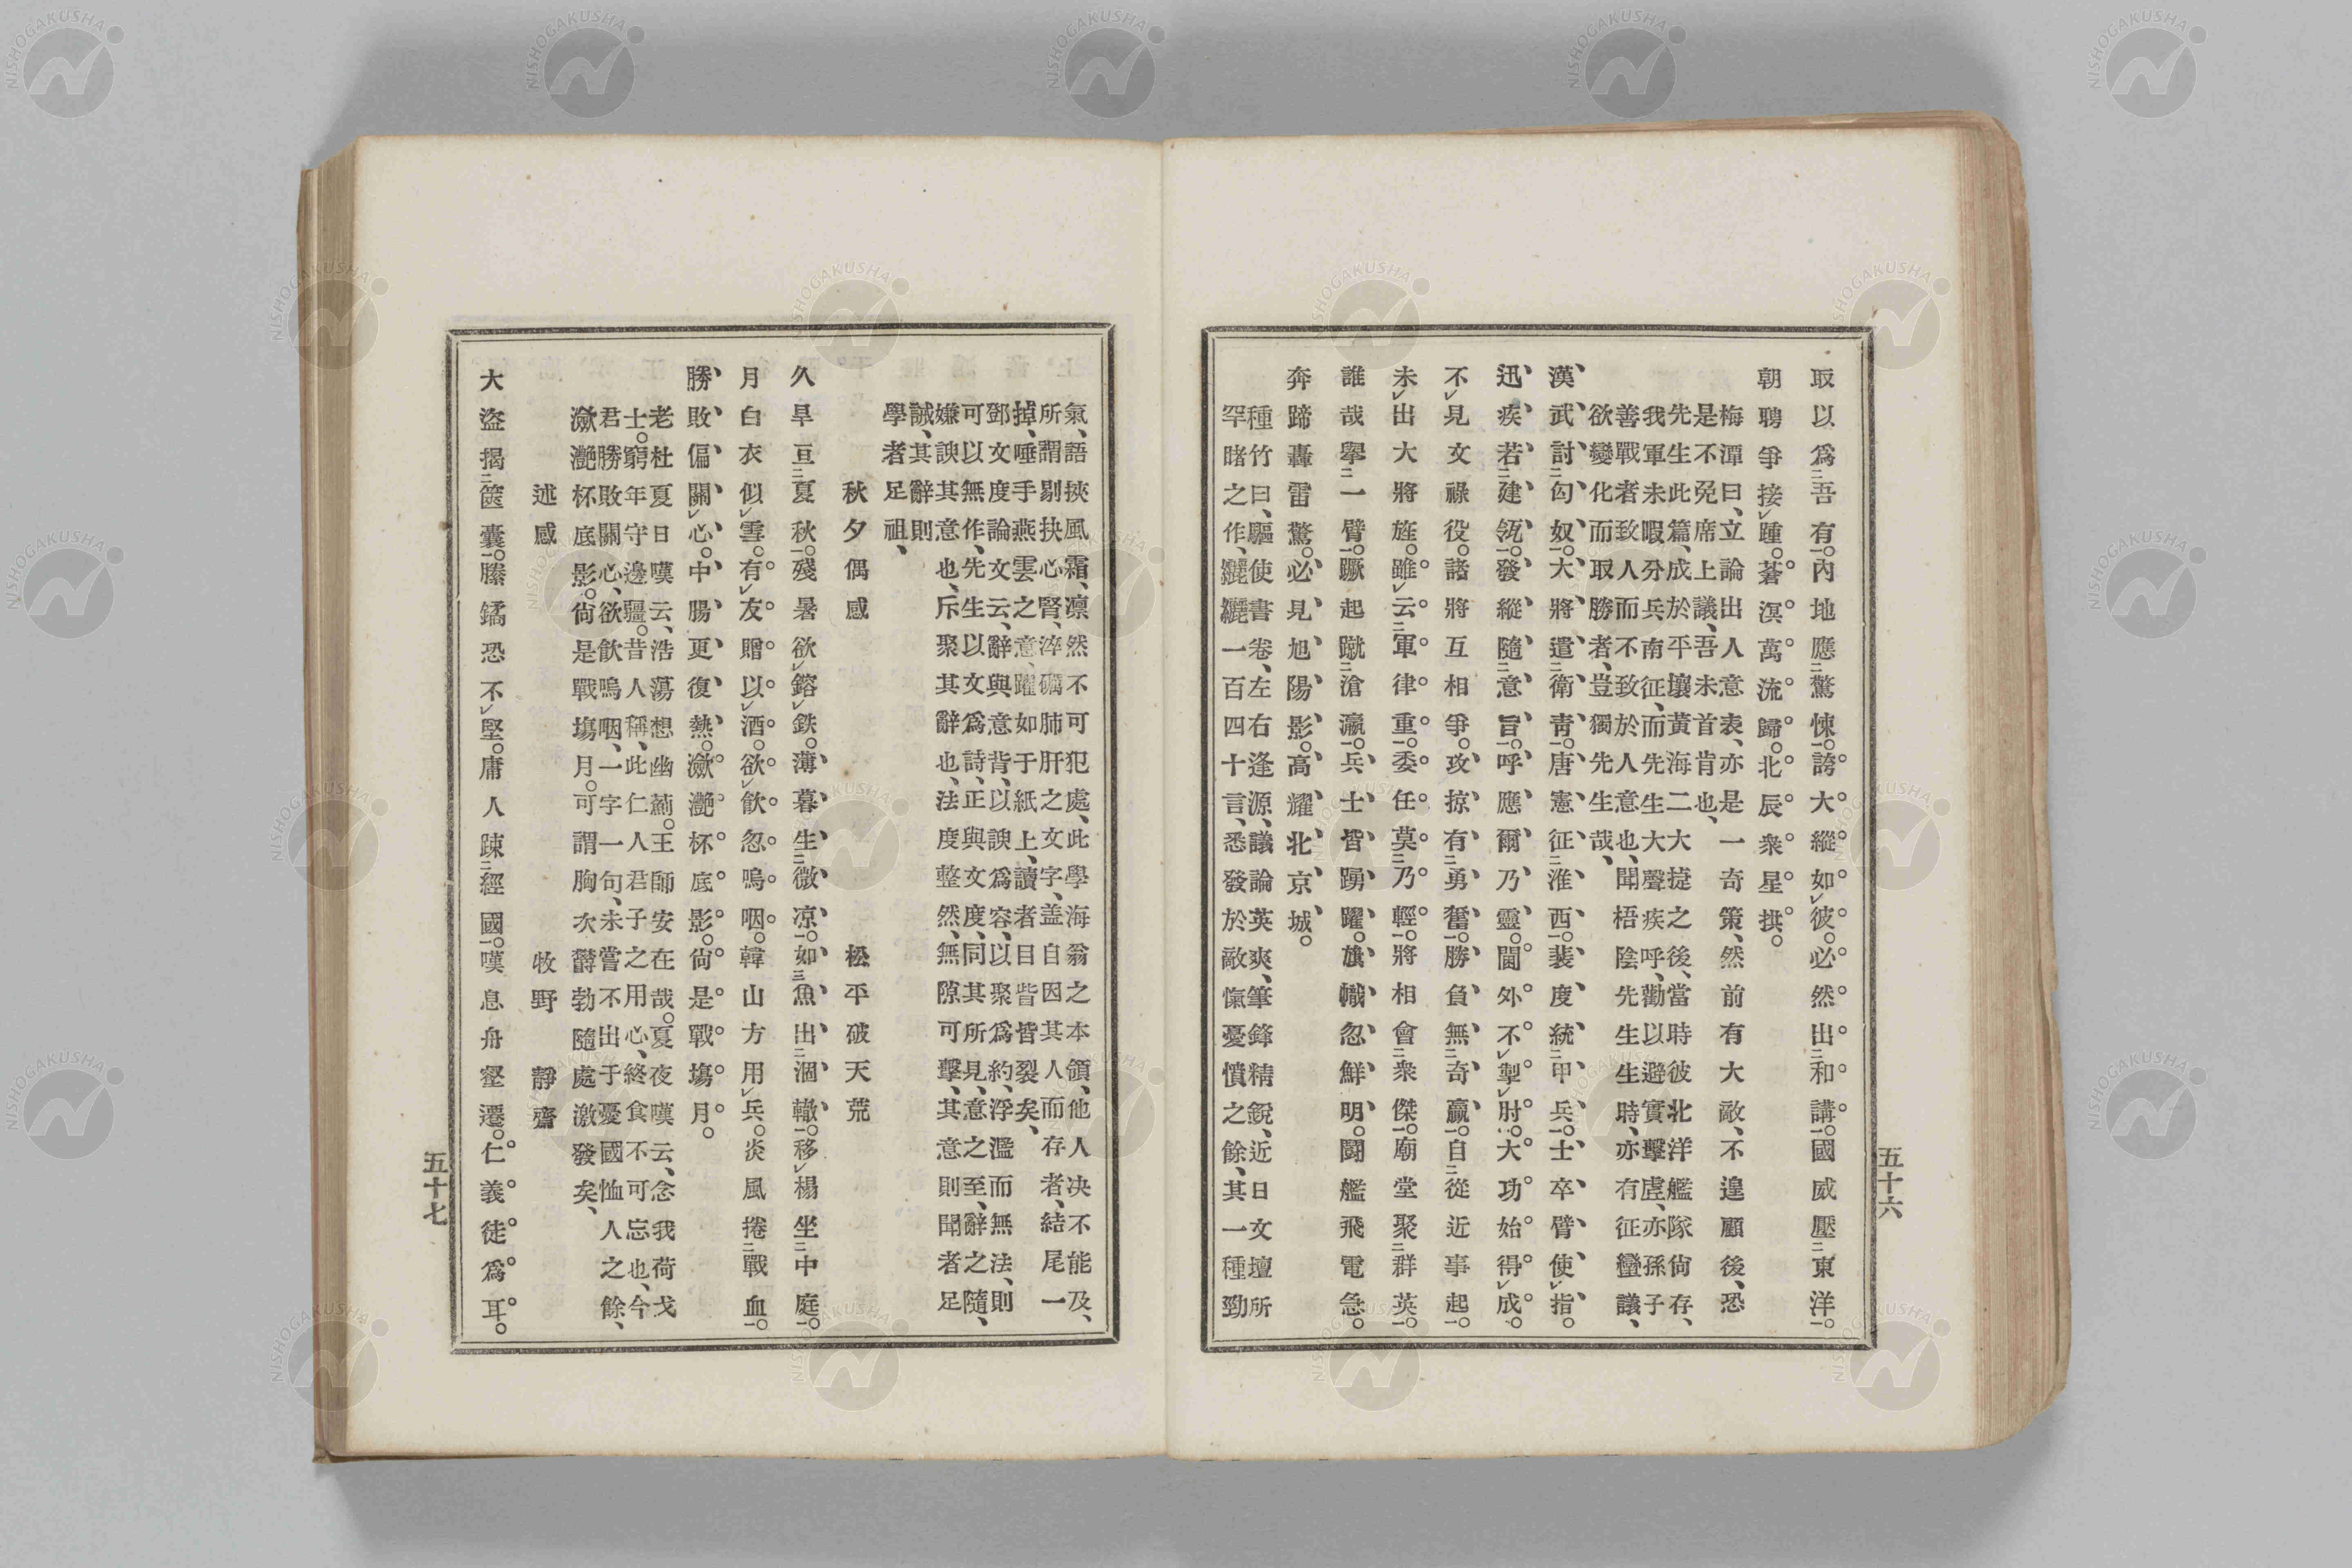 取以爲吾有。內地應驚悚。誇大縱如彼。必然出和講。國威壓東洋。
朝聘爭接踵。蒼溟萬流歸。北辰衆星拱。
梅潭曰、立論出人意表、亦是一奇策、然前有大敵、不遑顧後、恐
是不免席上議、吾未首肯也、
先生此篇、成於平壤黃海二大捷之後、當時彼北洋艦隊尙存、
我軍未暇分兵南征、而先生大聲疾呼、勸以避實擊虛、亦孫子
善戰者致人而不致於人意也、聞梧陰先生生時、亦有征蠻議、
欲變化而取勝者、豈獨先生哉、
漢武討匈奴。大將遣衛靑。唐憲征淮西。裴度統甲兵。士卒臂使指。
迅疾若建瓴。發縱隨意旨。呼應爾乃靈。閫外不掣肘。大功始得成。
不見文祿役。諸將互相爭。攻掠有勇奮。勝負無奇贏。自從近事起。
未出大將旌。雖云軍律重。委任莫乃輕。將相會衆傑。廟堂聚群英。
誰哉舉一臂。蹶起蹴滄瀛。兵士皆踴躍。旗幟忽鮮明。鬪艦飛電急。
奔蹄轟雷驚。必見旭陽影。高耀北京城。
種竹曰、驅使書卷、左右逢源、議論英爽、筆鋒精銳、近日文壇所
罕睹之作、纚纚一百四十言、悉發於敵愾憂憤之餘、其一種勁
五十六
氣、語挾風霜、凛然不可犯處、此學海翁之本領、他人决不能及、
所謂剔抉心腎、淬礪肺肝之文字、盖自因其人而存者、結尾一
掉、唾手燕雲之意、躍如于紙上、讀者目眥皆裂矣、
鄧文度論文云、辭與意背、以諛爲容、以聚爲約、浮濫而無法、則
可以無作、先生以文爲詩、正與文度、同其所見、意之至、辭之隨、
嫌諛其意也、斥聚其辭也、法度整然、無隙可擊、其意則聞者足
誡、其辭則
學者足祖、
秋夕偶感　松平破天荒
久旱亘夏秋。殘暑欲鎔鉄。薄暮生微凉。如魚出涸轍。移榻坐中庭。
月白衣似雪。有友贈以酒。欲飮忽嗚咽。韓山方用兵。炎風捲戰血。
勝敗偏關心。中腸更復熱。瀲灔杯底影。尙是戰塲月。
老杜夏日嘆云、浩蕩想幽薊。王師安在哉。夏夜嘆云、念我荷戈
士。窮年守邊疆。昔人稱、此仁人君子之用心、終食不可忘也、今
君勝敗關心、欲飮嗚咽、一字一句、未嘗不出于憂國恤人之餘、
瀲灔杯底影。尙是戰塲月。可謂胸次欝勃隨處激發矣、
述感　牧野靜齋
大盜揭篋囊。縢鐍恐不堅。庸人踈經國。嘆息舟壑遷。仁義徒爲耳。
五十七